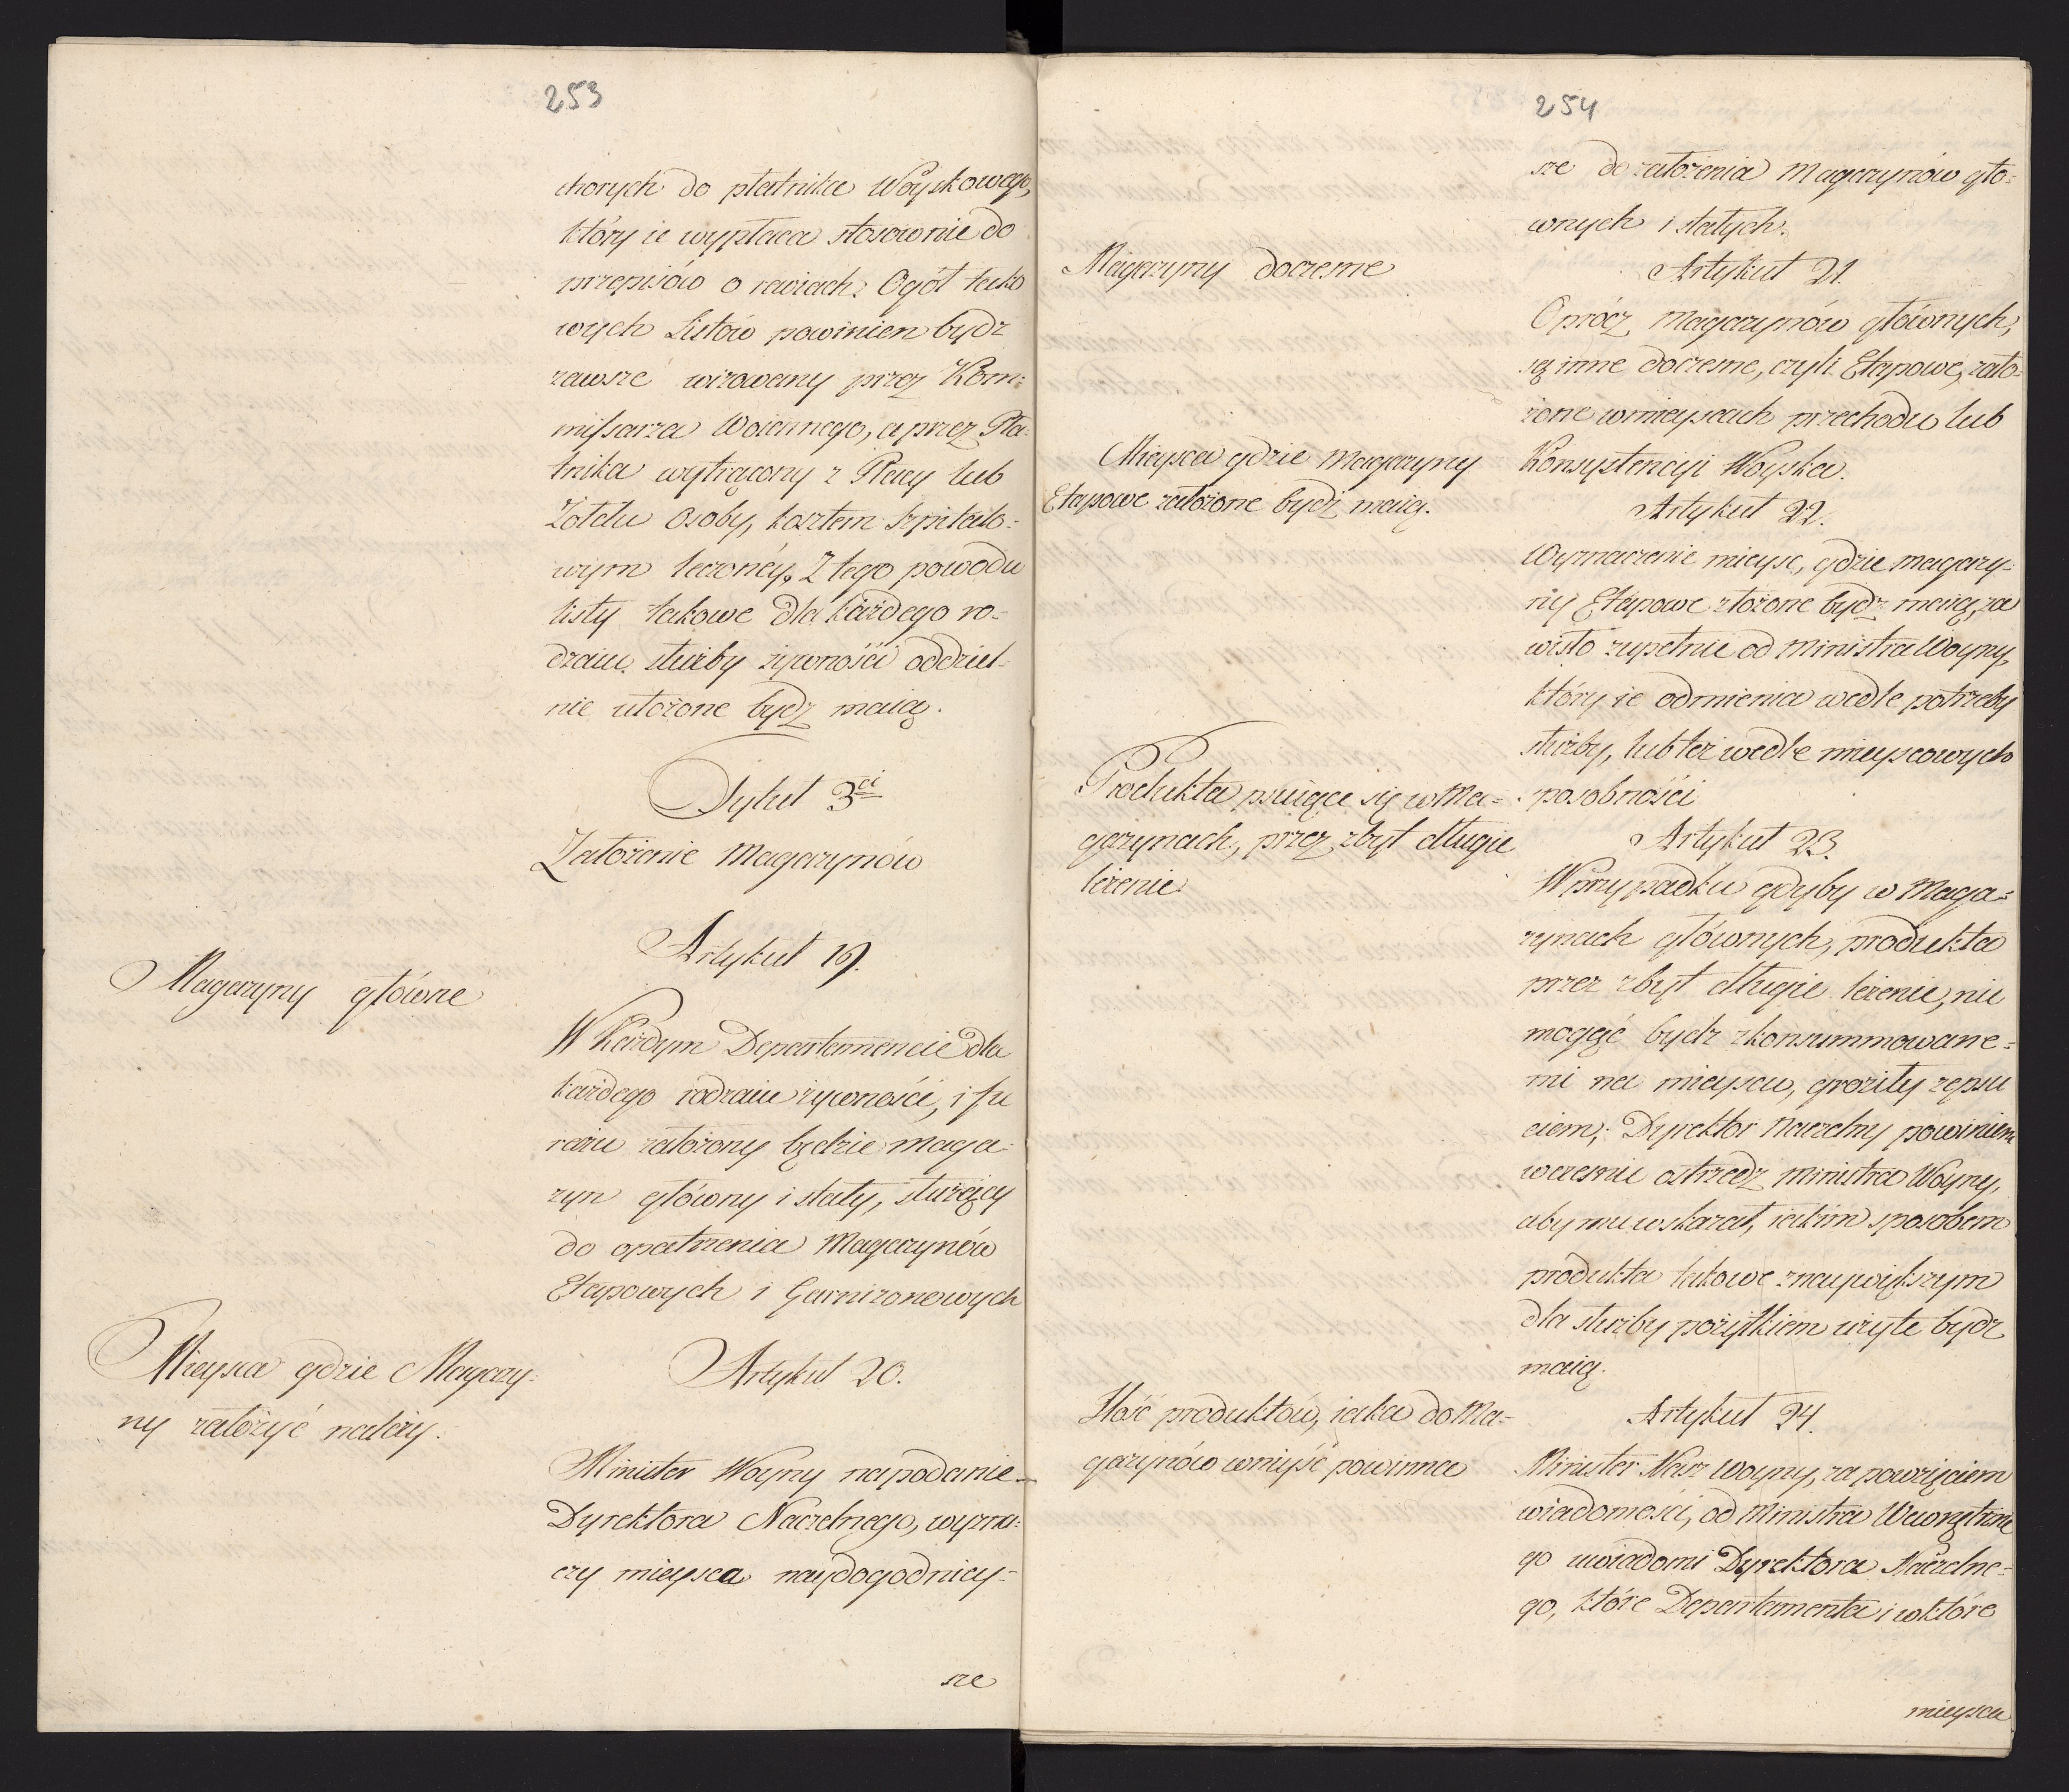 253
chorych do płatnika Woyskowego,
który ie wypłaca stosownie do
przepisów o rewiach. Ogół tako
wych Listów powinien bydz
zawsze wizowany przez Kom:
missarza Woiennego, a przez Pła-
tnika wytrącony z Płacy lub
Żołdu Osoby, kosztem Szpitalo:
wym leczonéy. Z tego powodu
listy takowe dla każdego ro-
dzaiu służby żywności oddziel-
nie ułożone bydz maią.
Tytuł 3ci
Założenie Magazynów
Artykuł 19.
Magazyny główne
W każdym Departamencie dla
każdego rodzaiu żywności, i fu
rażu założony będzie maga-
zyn główny i stały, służący
do opatrzenia Magazynów
Etapowych i Garnizonowych
Mieysca gdzie Magazy:
ny założyć należy.
Artykuł 20.
Minister Woyny na podanie
Dyrektora Naczelnego, wyzna:
czy mieysca naydogodniey-
sze
254
sze do założenia Magazynów głó-
wnych i stałych.
Magazyny doczesne
Artykuł 21.
Oprócz Magazynów głównych,
są inne doczesne, czyli Etapowe, zało-
żone w mieyscach przechodu lub
Konsystencyi Woyska.
Mieysca gdzie Magazyny
Etapowe założone bydź maią.
Artykuł 22.
Wyznaczenie mieysc, gdzie magazy-
ny Etapowe złożone bydz maią, za
wisło zupełnie od Ministra Woyny,
który ie odmienia wedle potrzeby
służby, lub też wedle mieyscowych
posobności
Produkta psuiące się w Ma-
gazynach, przez zbyt długie
leżenie
Artykuł 23.
W przypadku gdyby w Maga-
zynach głównych, produkta
przez zbyt długie leżenie, nie
mogąć bydz zkonsummowane-
mi na mieyscu, groziły zepsu
ciem; Dyrektor Naczelny powinien
wcześnie ostrzedz Ministra Woyny,
aby mu wskazał, iakim sposobem
produkta takowe z naywiększym
dla służby pożytkiem użyte bydz
maią.
Ilość produktów, iaka do Ma-
gazynów wniyść powinna
Artykuł 24.
Minister Nasz Woyny, za powzięciem
wiadomości, od Ministra Wewnętrzne
go uwiadomi Dyrektora Naczelne-
go, które Departamenta i w które
mieysca